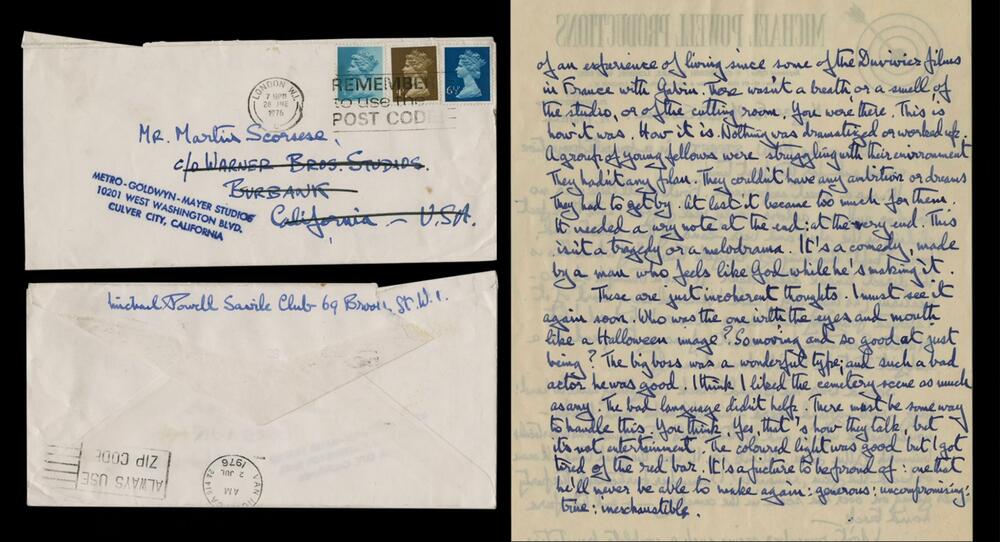 LONDON W.1.
7 30PM
28 JNE
1976
REMEMBER
to use the
POST CODE
6½P
Mr. Martin Scorsese,
c/o WARNER BROS. STUDIOS.
BURBANK
California — U.S.A.
METRO-GOLDWYN-MAYER STUDIOS
10201 WEST WASHINGTON BLVD.
CULVER CITY, CALIFORNIA
Michael Powell Savile Club 69 Brook St. W.1.
ALWAYS USE
ZIP CODE
AM
2 JUL
1976
MICHAEL POWELL PRODUCTIONS
of an experience of living since some of the Duvivier films
in France with Gabin. There wasn't a breath or a smell of
the studio, or of the cutting room. You were there. This is
how it was. How it is. Nothing was dramatized or worked up.
A group of young fellows were struggling with their environment
They hadn't any plan. They couldn't have any ambition or dreams
They had to get by. At last it became too much for them.
It needed a wry note at the end: at the very end. This
isn't a tragedy or a melodrama. It's a comedy, made
by a man who feels like God while he's making it.
These are just incoherent thoughts. I must see it
again soon. Who was the one with the eyes and mouth
like a Halloween image? So moving and so good at just
being? The big boss was a wonderful type; and such a bad
actor he was good. I think I liked the cemetery scene as much
as any. The bad language didn't help. There must be some way
to handle this. You think, Yes, that's how they talk, but
it's not entertainment. The coloured light was good but I got
tired of the red bar. It's a picture to be proud of: one that
he'll never be able to make again: generous: uncompromising:
true: inexhaustible.